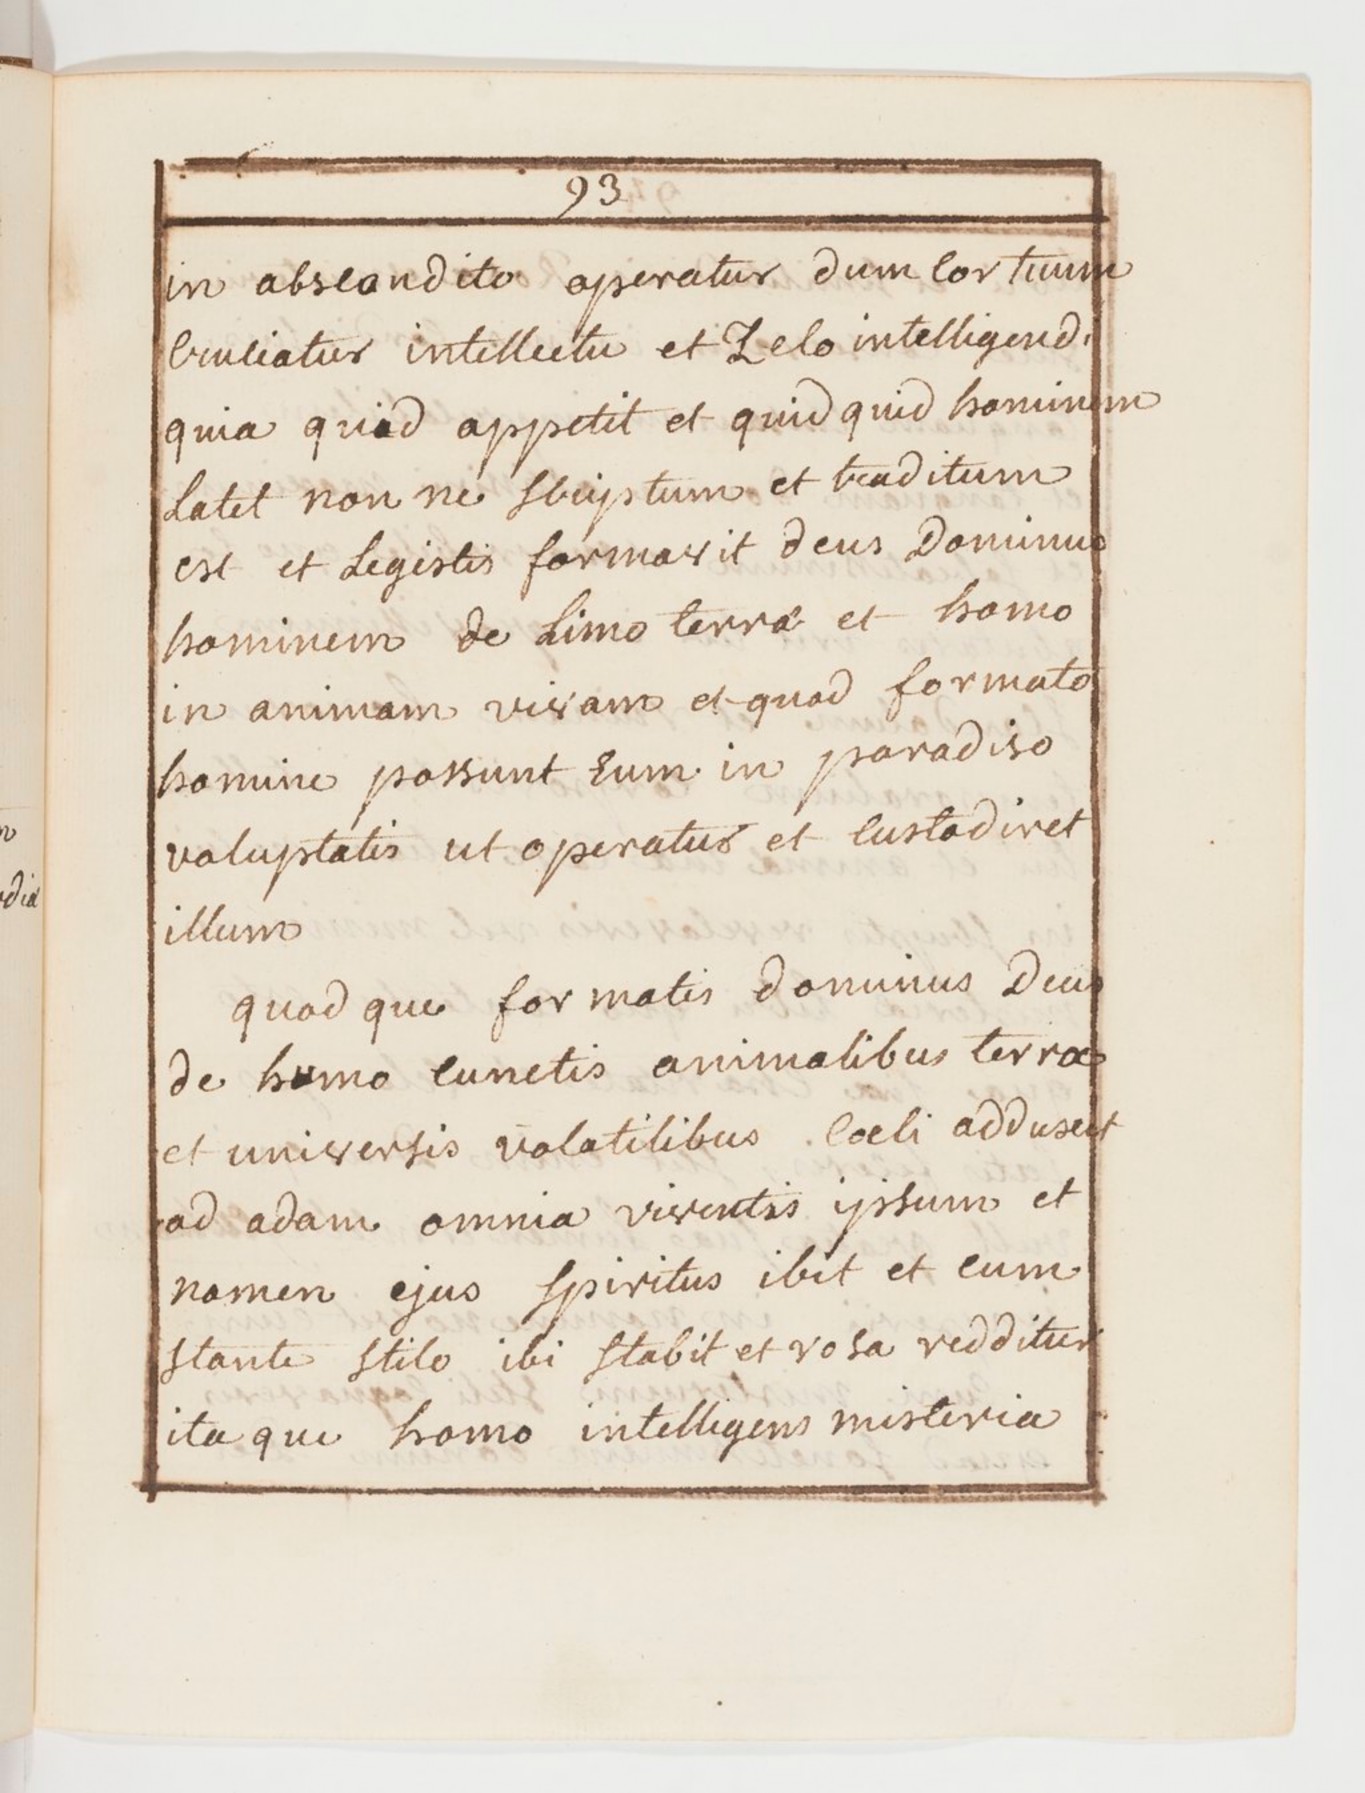 93
in abscondito operatur dum cor tuum
cruciatur intellectu et Zelo intelligendi
quia quid appetit et quid quid hominem
Latet non ne scriptum et traditum
est et Legistis formavit deus Dominus
hominem de Limo terræ et homo
in animam vivam et quod formato
homine possunt Eum in paradiso
voluptatis ut operatur et custodiret
illum
quod que formatis dominus Deus
de humo cunctis animalibus terræ
et universis volatilibus cœli adduxit
ad adam omnia viventis ipsum et
nomen ejus spiritus ibit et cum
stante stilo ibi stabit et rosa redditur
ita que homo intelligens misteria